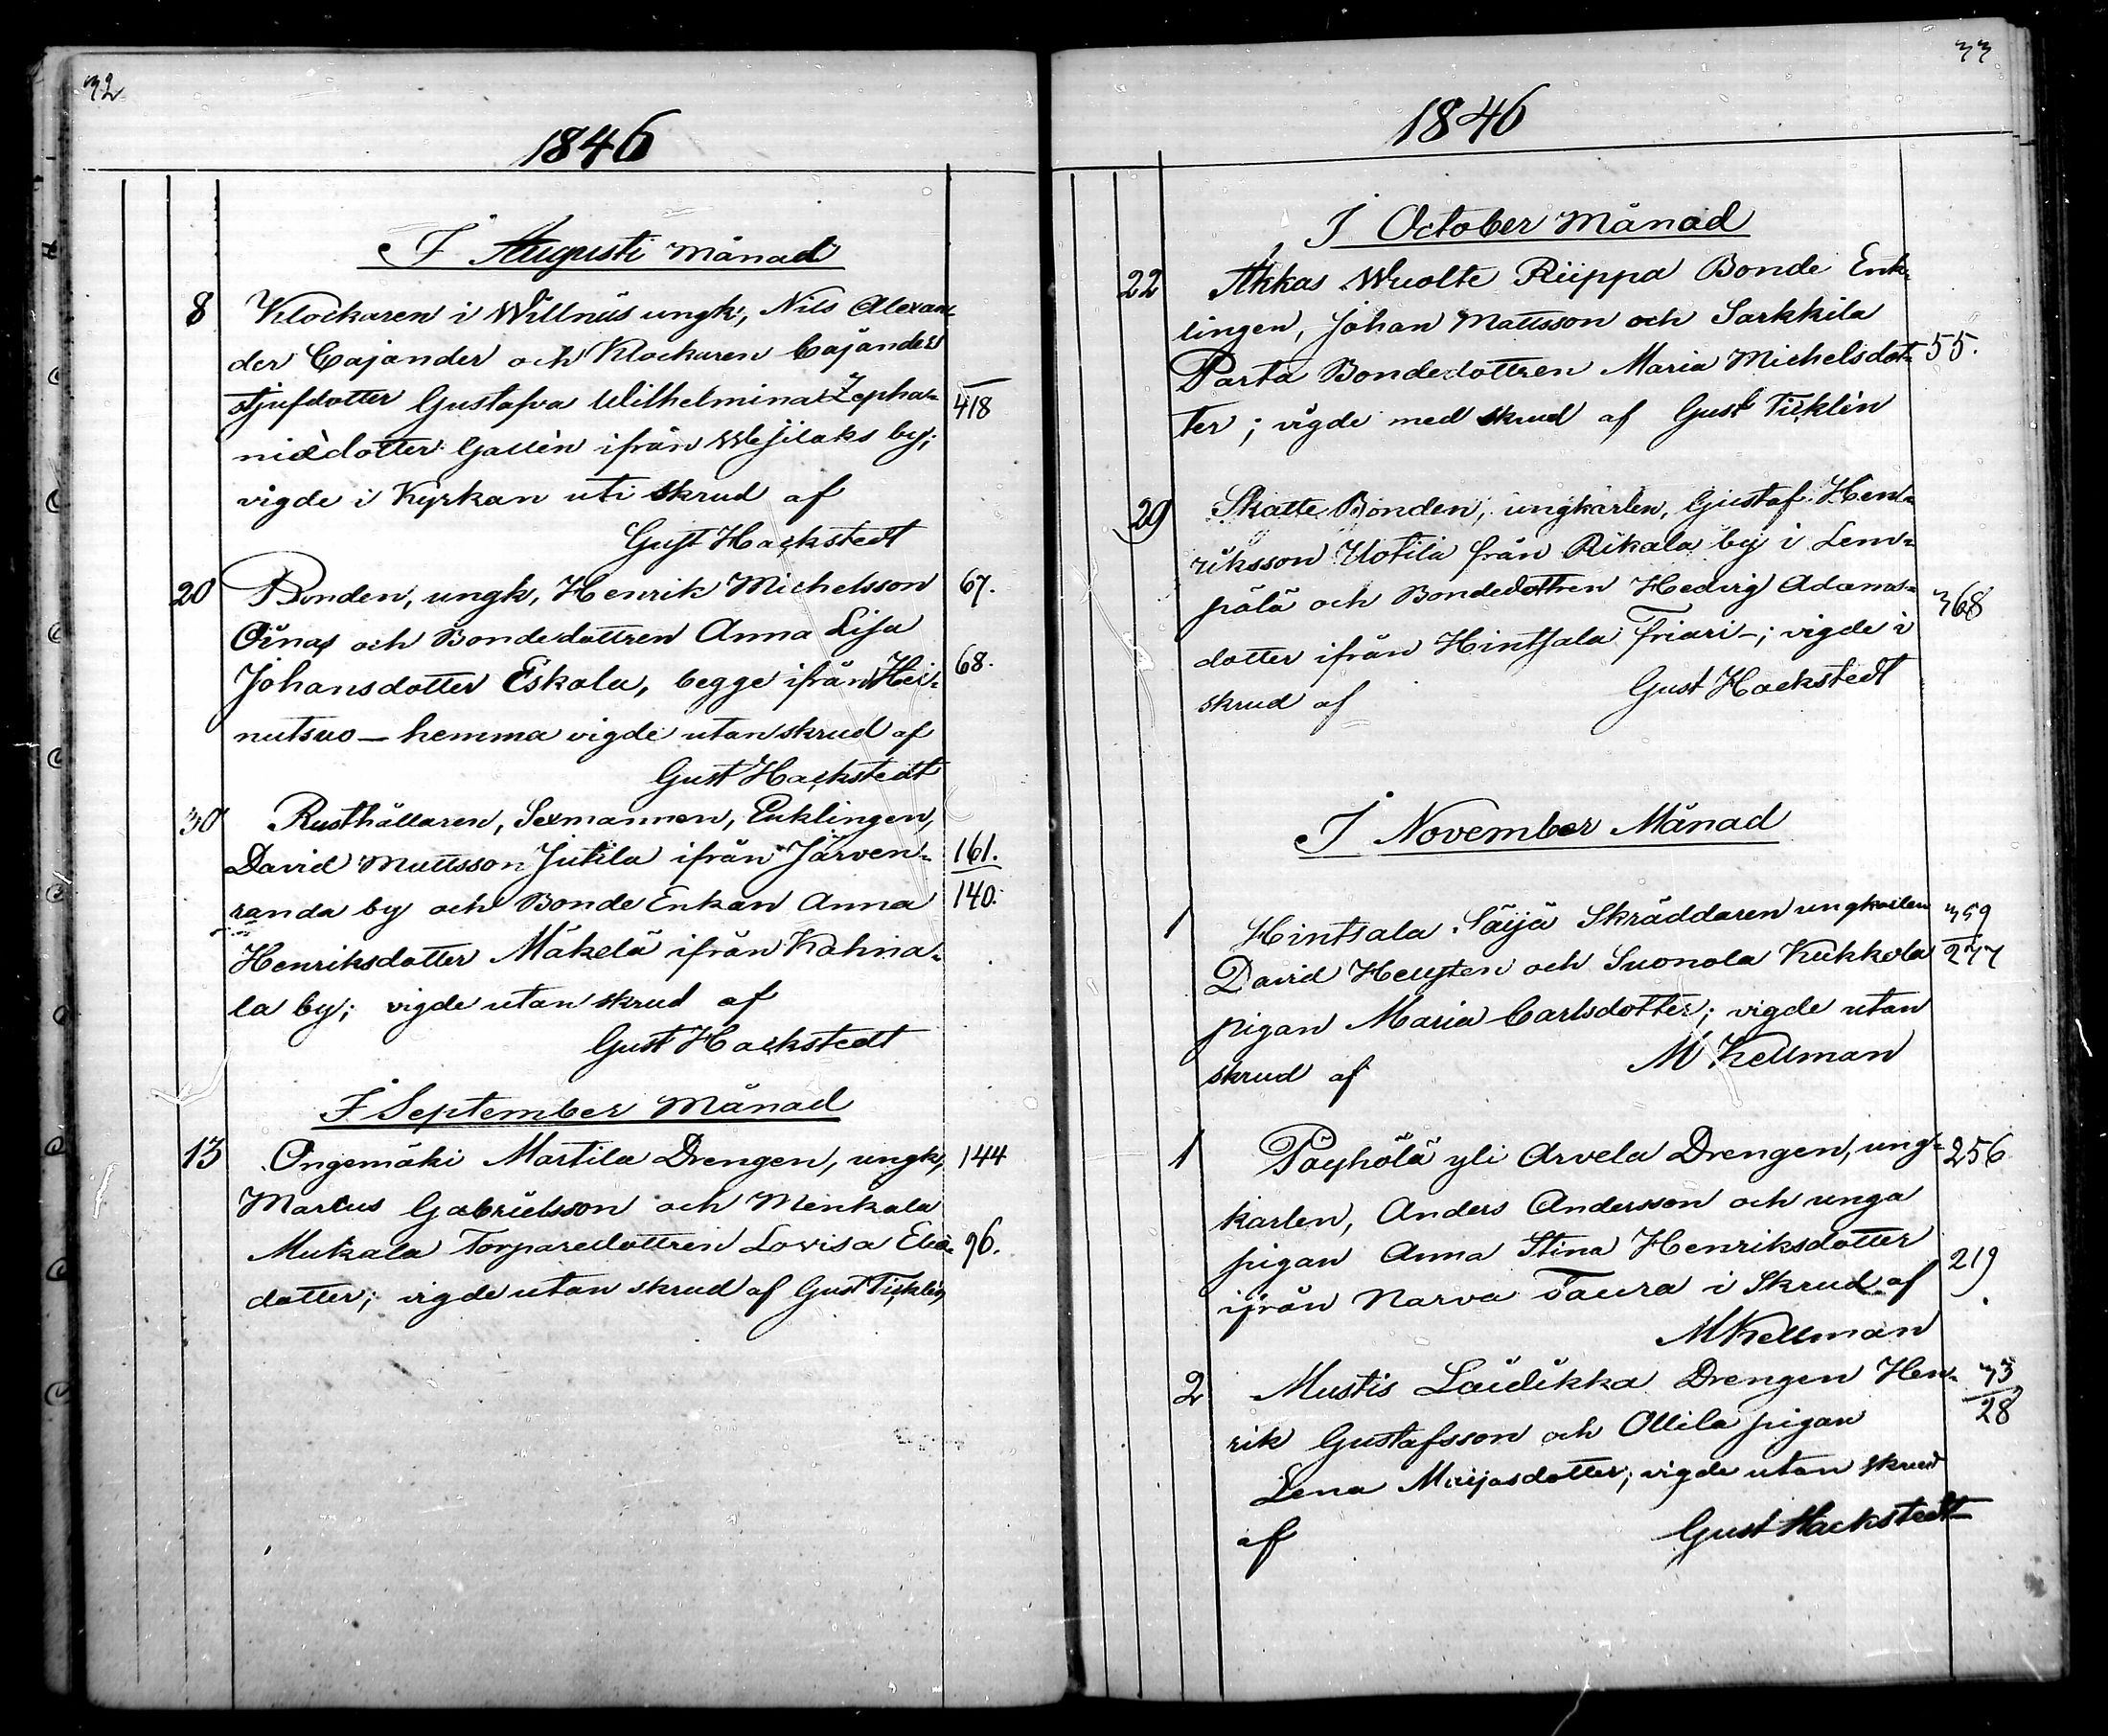 32
1846
I Augusti Månad
8 Klockaren i Willnäs ungk, Nils Alexan-
der Cajander och Klockaren Cajanders
stjufdotter Gustafva Wilhelmina Zepha- 418
niædotter Gallèn ifrån Wesilaks by;
vigde i Kyrkan uti skrud af
Gust Hackstedt
20 Bonden, ungk, Henrik Michelsson 67.
Oinas och Bondedottren Anna Lisa
Johansdotter Eskola, begge ifrån Hei- 68.
nutsuo – hemma vigde utan skrud af
Gust Hackstedt
30 Rusthållaren, Sexmannen, Enklingen,
David Mattsson Jutila ifrån Järven- 161.
randa by och Bonde Enkan Anna 140.
Henriksdotter Mäkelä ifrån Kahina-
la by; vigde utan skrud af
Gust Hackstedt
I September Månad
13 Ongemäki Martila Drengen, ungk, 144
Marcus Gabrielsson och Menkala
Mukala Torparedottren Lovisa Elia- 96.
dotter; vigde utan skrud af Gust Ticklén
33
1846
I October Månad
22 Akkas Wuolte Riippa Bonde Enk-
lingen, Johan Mattsson och Sarkkila
Parta Bondedottren Maria Michelsdot- 55.
ter; vigde med skrud af Gust Ticklén
29 Skatte Bonden, ungkarlen, Gustaf Hen-
riksson Uotila från Rikala by i Lem-
pälä och Bondedottren Hedvig Adams- 368
dotter ifrån Hintsala Friari –; vigde i
skrud af Gust Hackstedt
I November Månad
1 Hintsala Säijä Skräddaren ungkarlen 359
David Hellsten och Suonola Kukkola 277
pigan Maria Carlsdotter; vigde utan
skrud af M Kellman
1 Päyhölä yli Arvela Drengen, ung- 256
karlen, Anders Andersson och unga
pigan Anna Stina Henriksdotter 219
ifrån Narva Taura i Skrud af
M Kellman
2 Mustis Laidikka Drengen Hen- 33
rik Gustafsson och Ollila pigan 28
Lena Maijasdotter; vigde utan skrud
af Gust Hackstedt